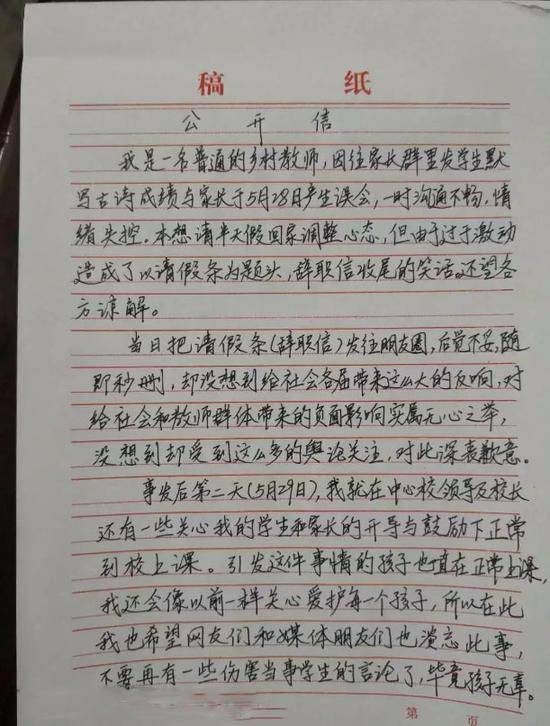 稿 纸
公开信
我是一名普通的乡村教师,因往家长群里发学生默
写古诗成绩与家长于5月28日产生误会,一时沟通不畅,情
绪失控。本想请半天假回家调整心态,但由于过于激动
造成了以请假条为题头,辞职信收尾的笑话。还望各
方谅解。
当日把请假条(辞职信)发往朋友圈,后觉不妥,随
即秒删,却没想到给社会各届带来这么大的反响,对
给社会和教师群体带来的负面影响实属无心之举,
没想到却受到这么多的舆论关注,对此深表歉意。
事发后第二天(5月29日),我就在中心校领导及校长
还有一些关心我的学生和家长的开导与鼓励下正常
到校上课。引发这件事情的孩子也一直在正常上课,
我还会像以前一样关心爱护每一个孩子,所以在此
我也希望网友们和媒体朋友们也淡忘此事,
不要再有一些伤害当事学生的言论了,毕竟孩子无辜。
第 页